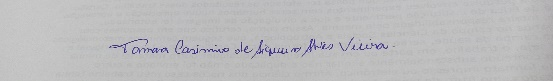 Tamara Casimiro de Siqueira Alves Vieira.